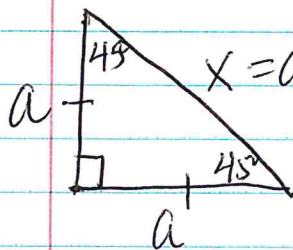 45°
x = a
a
45°
a